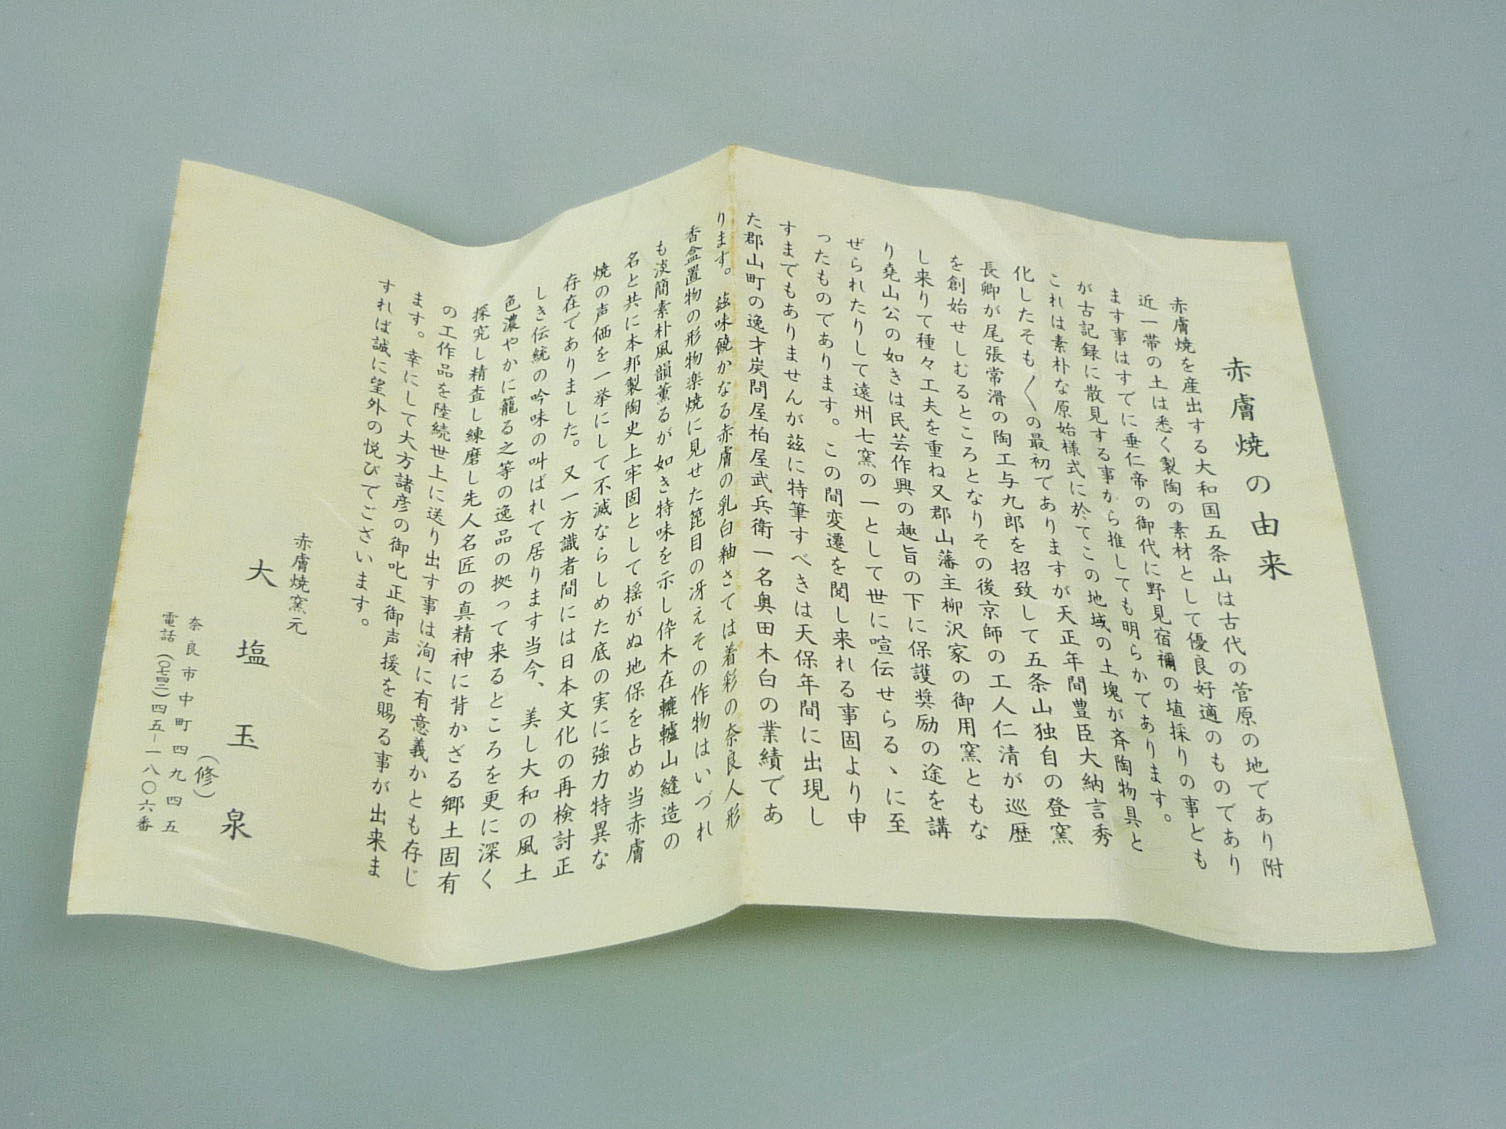 赤膚焼の由来
赤膚焼を産出する大和国五条山は古代の菅原の地であり附
近一帯の土は悉く製陶の素材として優良好適のものであり
ます事はすでに垂仁帝の御代に野見宿禰の埴採りの事ども
が古記録に散見する事から推しても明らかであります。
これは素朴な原始様式に於てこの地域の土塊が斉陶物具と
化したそも〱の最初でありますが天正年間豊臣大納言秀
長卿が尾張常滑の陶工与九郎を招致して五条山独自の登窯
を創始せしむるところとなりその後京師の工人仁清が巡歴
し来りて種々工夫を重ね又郡山藩主柳沢家の御用窯ともな
り堯山公の如きは民芸作興の趣旨の下に保護奨励の途を講
ぜられたりして遠州七窯の一として世に喧伝せらるゝに至
ったものであります。この間変遷を閲し来れる事固より申
すまでもありませんが茲に特筆すべきは天保年間に出現し
た郡山町の逸才炭問屋柏屋武兵衛一名奥田木白の業績であ
ります。滋味饒かなる赤膚の乳白釉さては着彩の奈良人形
香盒置物の形物楽焼に見せた箆目の冴えその作物はいづれ
も淡簡素朴風韻薫るが如き特味を示し伜木在轆轤山縫造の
名と共に本邦製陶史上牢固として揺がぬ地保を占め当赤膚
焼の声価を一挙にして不滅ならしめた底の実に強力特異な
存在でありました。又一方識者間には日本文化の再検討正
しき伝統の吟味の叫ばれて居ります当今、美し大和の風土
色濃やかに籠る之等の逸品の拠って来るところを更に深く
探究し精査し練磨し先人名匠の真精神に背かざる郷土固有
の工作品を陸続世上に送り出す事は洵に有意義かとも存じ
ます。幸にして大方諸彦の御叱正御声援を賜る事が出来ま
すれば誠に望外の悦びでございます。
赤膚焼窯元
大塩玉泉
(修)
奈良市中町四九四五
電話(〇七四二)四五-一八〇六番